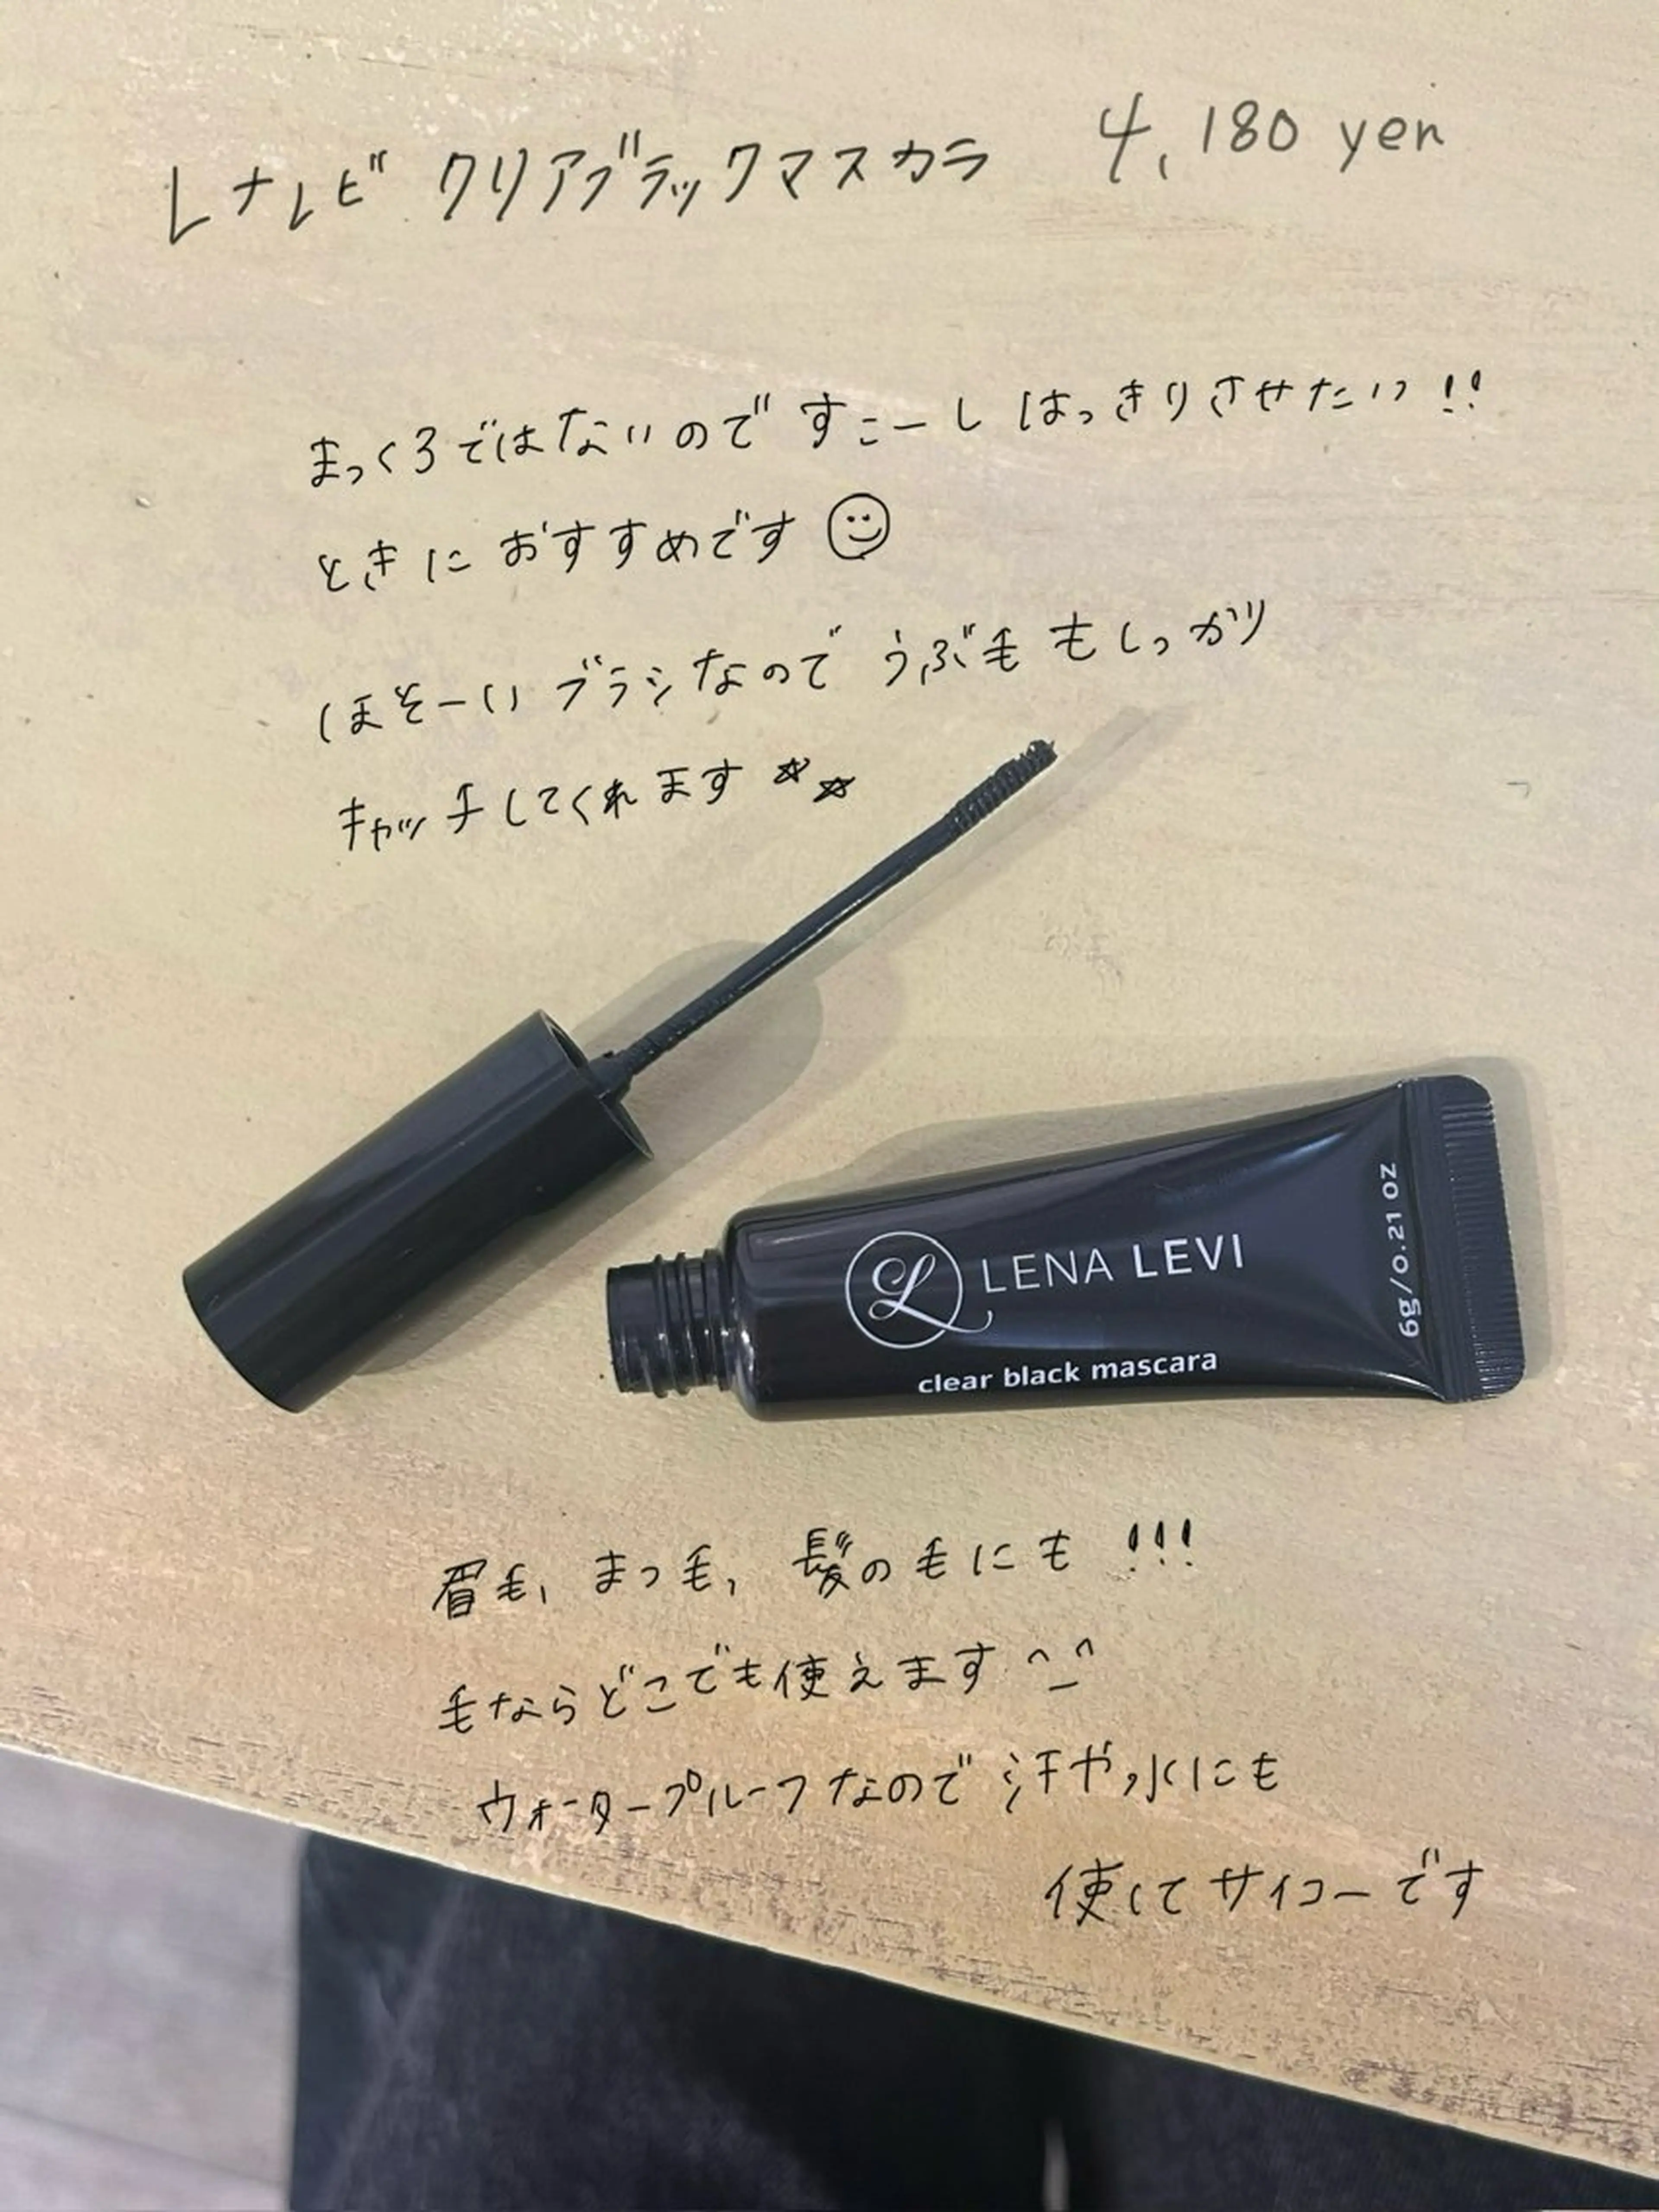 レナレビ クリアブラックマスカラ 4,180 yen
まっくろではないので すこーし はっきりさせたい!!
ときに おすすめです
ほそーい ブラシなので うぶ毛 もしっかり
キャッチしてくれます ☆☆
LENA LEVI
clear black mascara
6g/0.21 OZ
眉毛、まつ毛、髪の毛にも!!!
毛ならどこでも使えます ^_^
ウォータープルーフなので 汗や水にも
使くてサイコーです